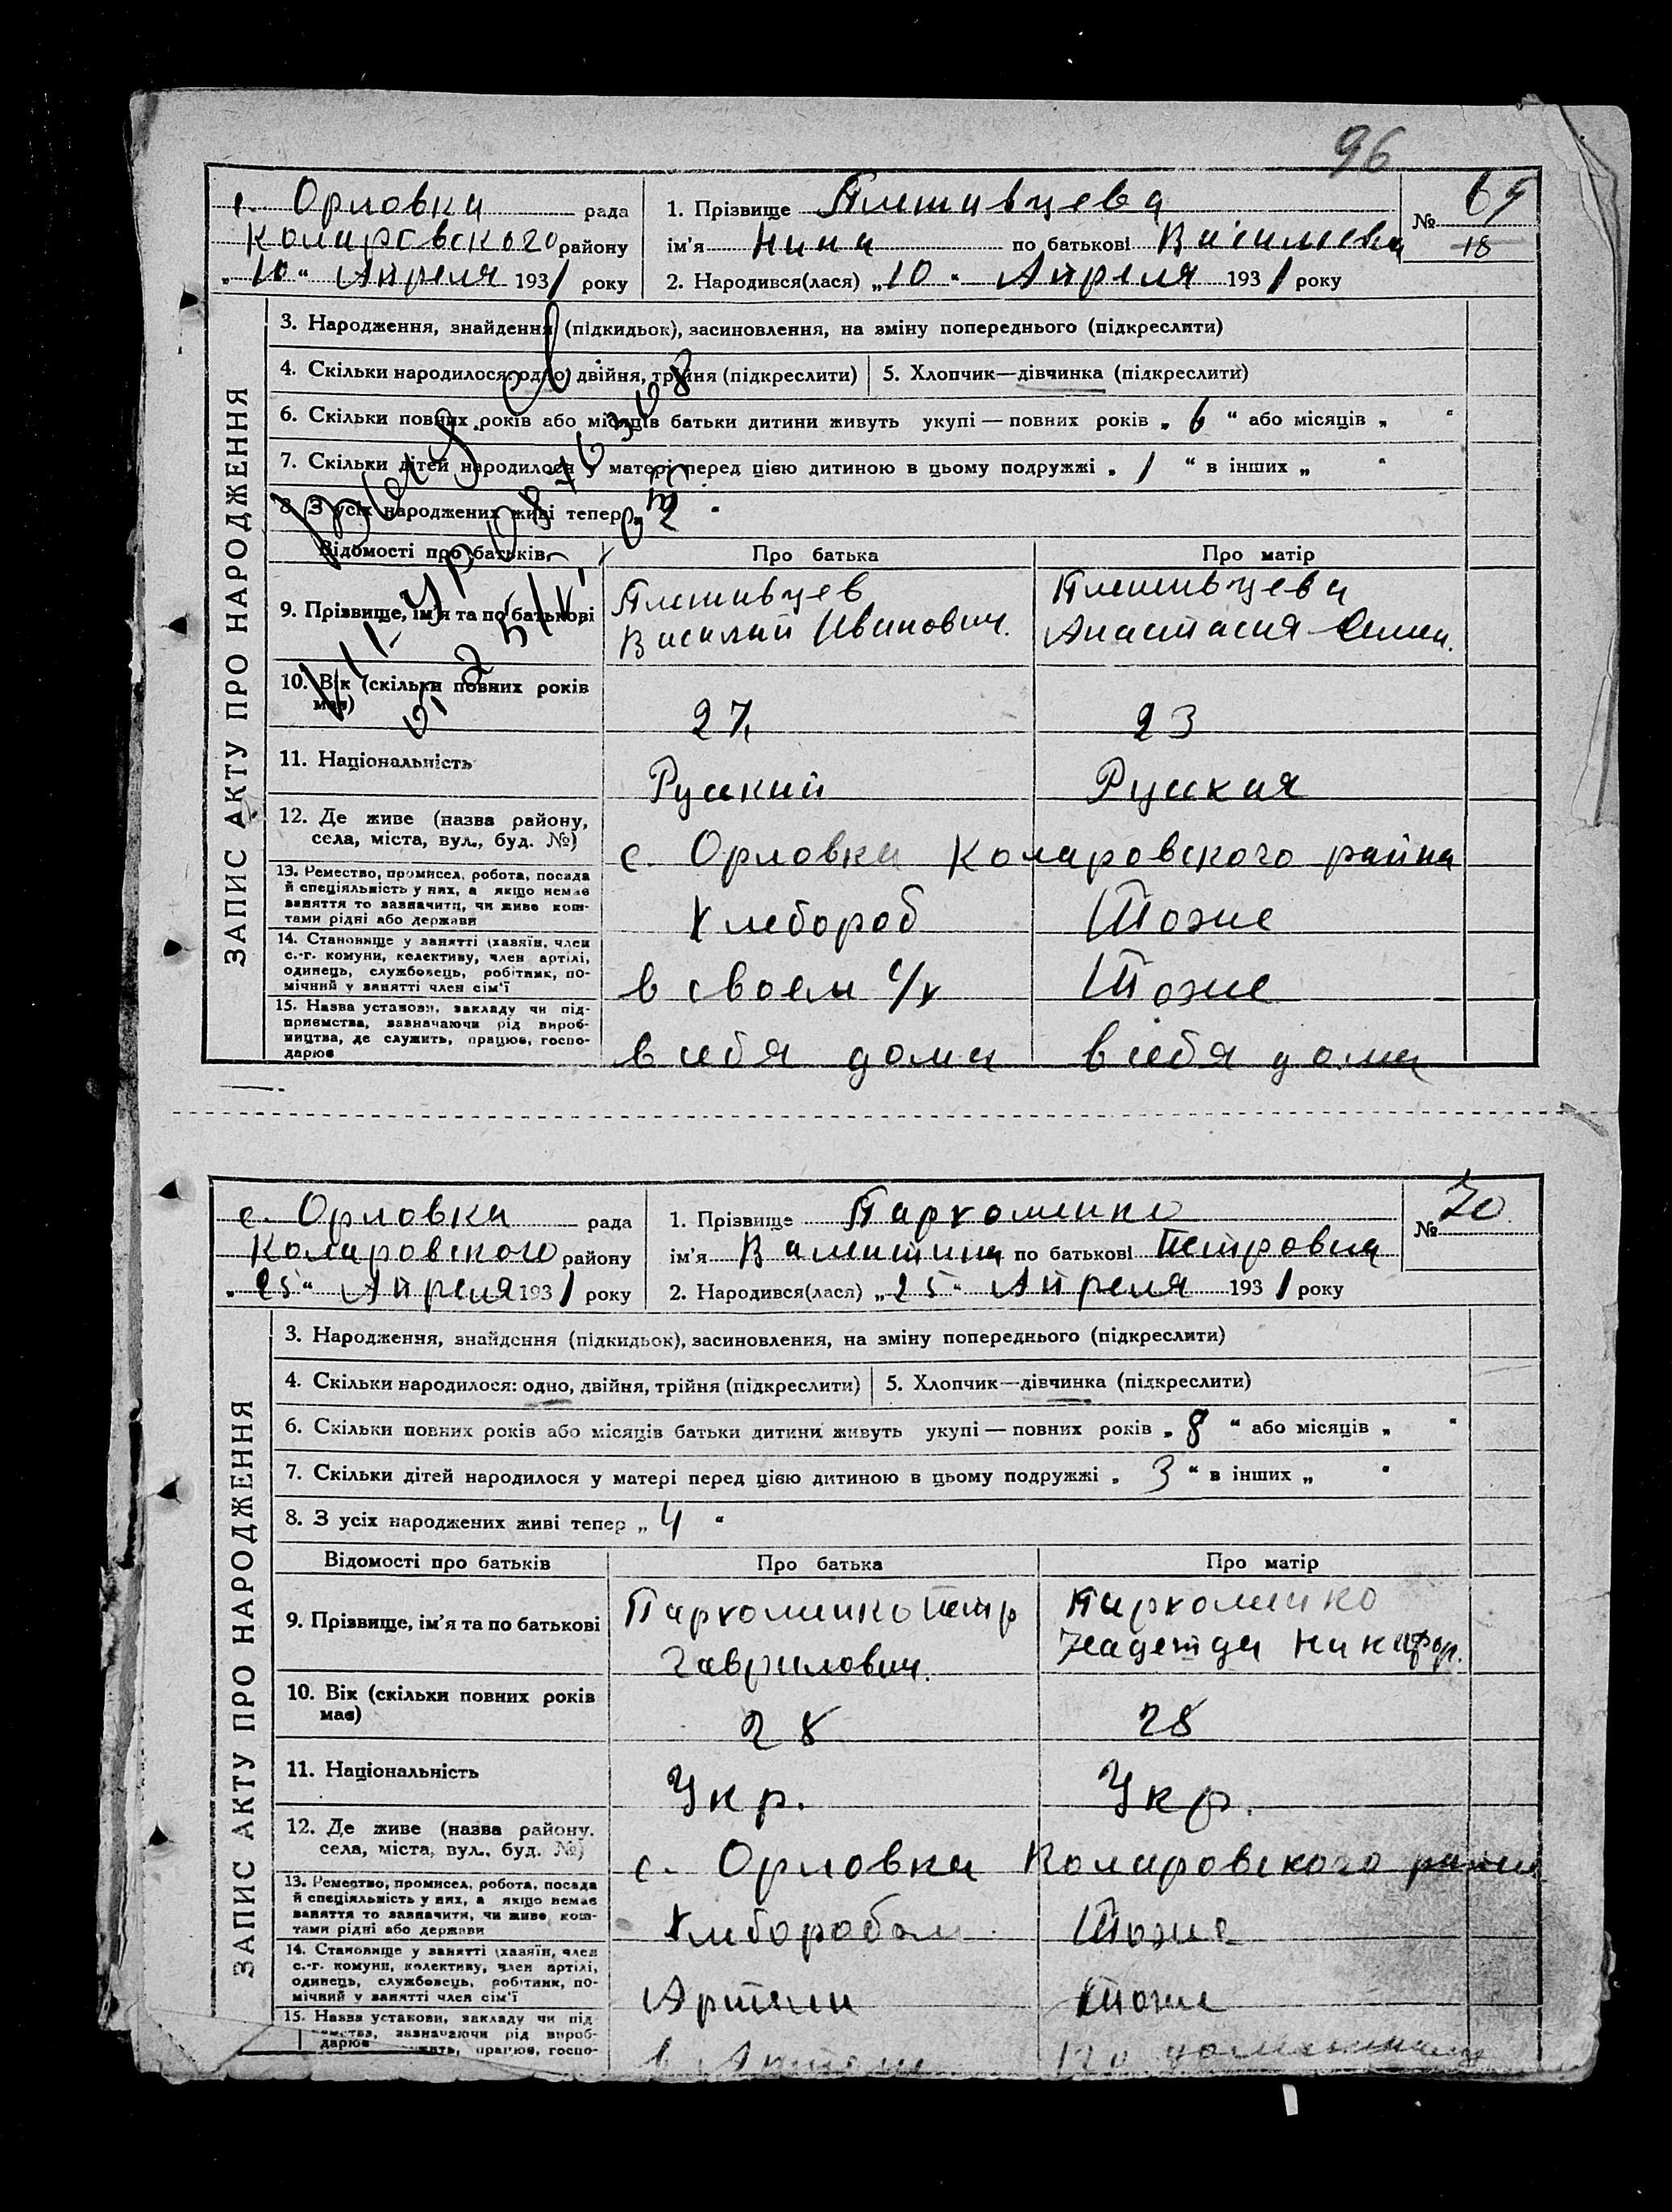 96
с. Орловка рада
Коларовского району
„10“ Апреля 1931 року
1. Прізвище Плешивцева
ім'я Нина по батькові Васильевна
2. Народився(лася) „10“ Апреля 1931 року
№ 69
18
ЗАПИС АКТУ ПРО НАРОДЖЕННЯ
3. Народження, знайдення (підкидьок), засиновлення, на зміну попереднього (підкреслити)
4. Скільки народилося: одно, двійня, трійня (підкреслити) 5. Хлопчик—дівчинка (підкреслити)
6. Скільки повних років або місяців батьки дитини живуть укупі — повних років „6“ або місяців „ “
7. Скільки дітей народилося у матері перед цією дитиною в цьому подружжі „1“ в інших „ “
8. З усіх народжених живі тепер „2“
Відомості про батьків Про батька Про матір
9. Прізвище, ім'я та по батькові
Плешивцев
Василий Иванович.
Плешивцева
Анастасия Семен.
10. Вік (скільки повних років
має)
27 23
11. Національність
Руский Руская
12. Де живе (назва району,
села, міста, вул., буд. №)
с. Орловка Коларовского района
13. Ремество, промисел, робота, посада
й спеціяльність у них, а якщо немає
заняття то зазначити, чи живе кош-
тами рідні або держави
Хлебороб Тоже
14. Становище у занятті (хазяїн, член
с.-г. комуни, колективу, член артілі,
одинець, службовець, робітник, по-
мічний у занятті член сім'ї
в своем с/х Тоже
15. Назва установи, закладу чи під-
приємства, зазначаючи рід вироб-
ництва, де служить, працює, госпо-
дарює
в себя дома в себя дома
с. Орловка рада
Коларовского району
„25“ Апреля 1931 року
1. Прізвище Пархоменко
ім'я Валентина по батькові Петровна
2. Народився(лася) „25“ Апреля 1931 року
№ 70
ЗАПИС АКТУ ПРО НАРОДЖЕННЯ
3. Народження, знайдення (підкидьок), засиновлення, на зміну попереднього (підкреслити)
4. Скільки народилося: одно, двійня, трійня (підкреслити) 5. Хлопчик—дівчинка (підкреслити)
6. Скільки повних років або місяців батьки дитини живуть укупі — повних років „8“ або місяців „ “
7. Скільки дітей народилося у матері перед цією дитиною в цьому подружжі „3“ в інших „ “
8. З усіх народжених живі тепер „4“
Відомості про батьків Про батька Про матір
9. Прізвище, ім'я та по батькові
Пархоменко Петр
Гаврилович.
Пархоменко
Надежда Никифор.
10. Вік (скільки повних років
має)
28 28
11. Національність
Укр. Укр.
12. Де живе (назва району.
села, міста, вул., буд. №)
с. Орловка Коларовского района
13. Ремество, промисел, робота, посада
й спеціяльність у них, а якщо немає
заняття то зазначити, чи живе кош-
тами рідні або держави
Хлебороб Тоже
14. Становище у занятті (хазяїн, член
с.-г. комуни, колективу, член артілі,
одинець, службовець, робітник, по-
мічний у занятті член сім'ї
Артели Тоже
15. Назва установи, закладу чи під
зазначаючи рід вироб-
дарює працює, госпо-
в Артели